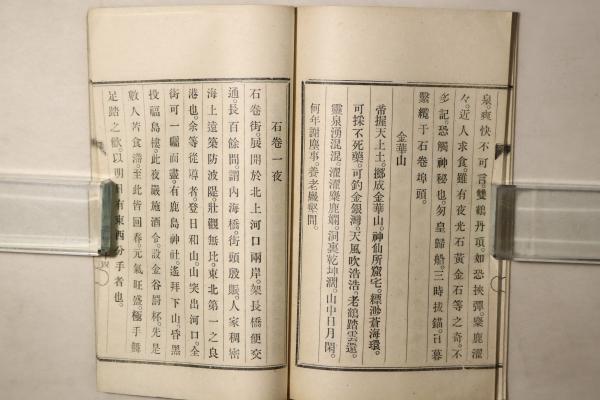 泉。爽快不可言。雙鶴丹頂。如恐挾彈。麋鹿濯
々。近人求食。雖有夜光石黃金石等之奇。不
多記。恐觸神秘也。匆皇歸船。三時拔錨。日暮
繫纜于石卷埠頭。
金華山
嘗握天上土。擲成金華山。神仙所窟宅。縹渺蒼海環。
可採不死藥。可釣金銀灣。天風吹浩浩。老鶴踏雲還。
靈泉湧混混。濯濯麋鹿嫺。洞裏乾坤濶。山中日月閑。
何年謝塵事。養老巖壑間。
石卷一夜
石卷街。展開於北上河口兩岸。架長橋便交
通。長百餘間。謂內海橋。街頭殷賑。人家稠密
海上遠築防波隄。壯觀無比。東北第一之良
港也。余等從導者。登日和山。山突出河口。全
街可一矚而盡。有鹿島神社。遙拜下山。昏黑
投福島樓。此夜嚴施酒令。設金谷罰杯。先是
數人苦食滯。至此皆回春。元氣旺盛。極手舞
足踏之歡。以明日有東西分手者也。